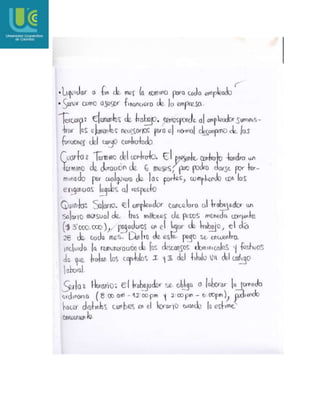 UCC
Universidad Cooperativa
de Colombia
• Liquidar a fin de mes la nomina para cada empleado
• Servir como asesor financiero de la empresa.
Tercera: Elementos de trabajo. corresponde al empleador suminis-
trar los elementos necesarios para el normal desempeño de las
funciones del cargo contratado.
Cuarta: Termino del contrato. El presente contrato tendra un
termino de duración de 6 meses, pero podra darse por ter-
minado por cualquiera de las partes, cumpliendo con las
exigencias legales al respecto
Quinta: Salario. El empleador cancelara al trabajador un
salario mensual de tres millones de pesos moneda corriente
($3'000.000), pagaderos en el lugar de trabajo, el día
28 de cada mes. Dentro de este pago se encuentra
incluida la remuneración de los descansos dominicales y festivos
de que tratan los capitulos I y II del titulo VII del codigo
laboral.
Sexta: Horario: El trabajador se obliga a laborar la jornada
ordinaria (8:00 am - 12:00 pm y 2:00 pm - 6:00 pm), pudiendo
hacer distintos cambios en el horario cuando lo estime
conveniente.